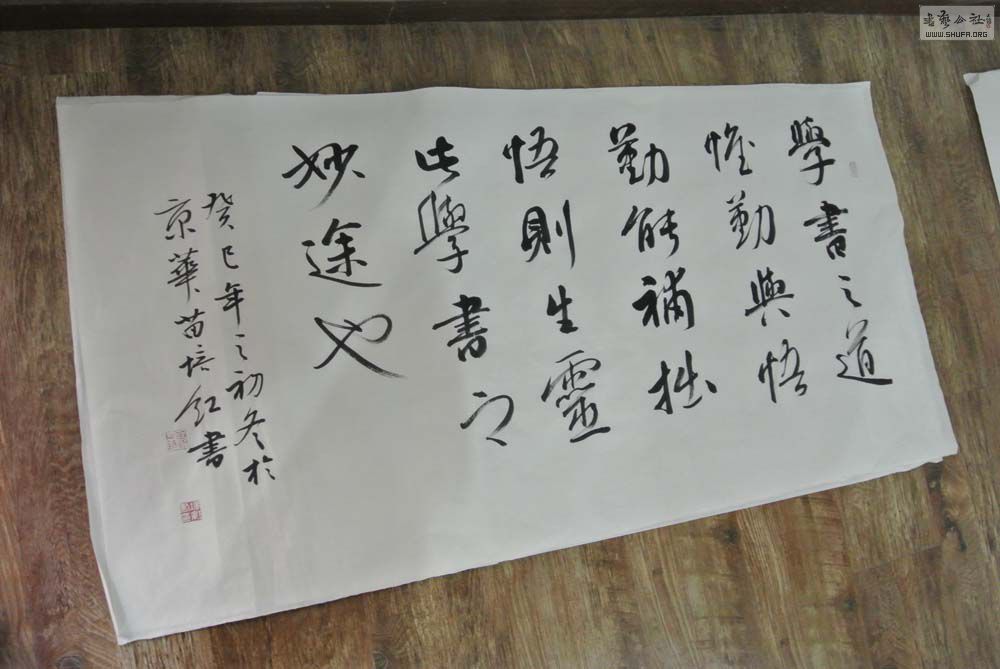 學書之道
惟勤與悟
勤能補拙
悟則生靈
此學書之
妙途也
癸巳年之初冬於
京華苗培紅書
書藝公社
WWW.SHUFA.ORG